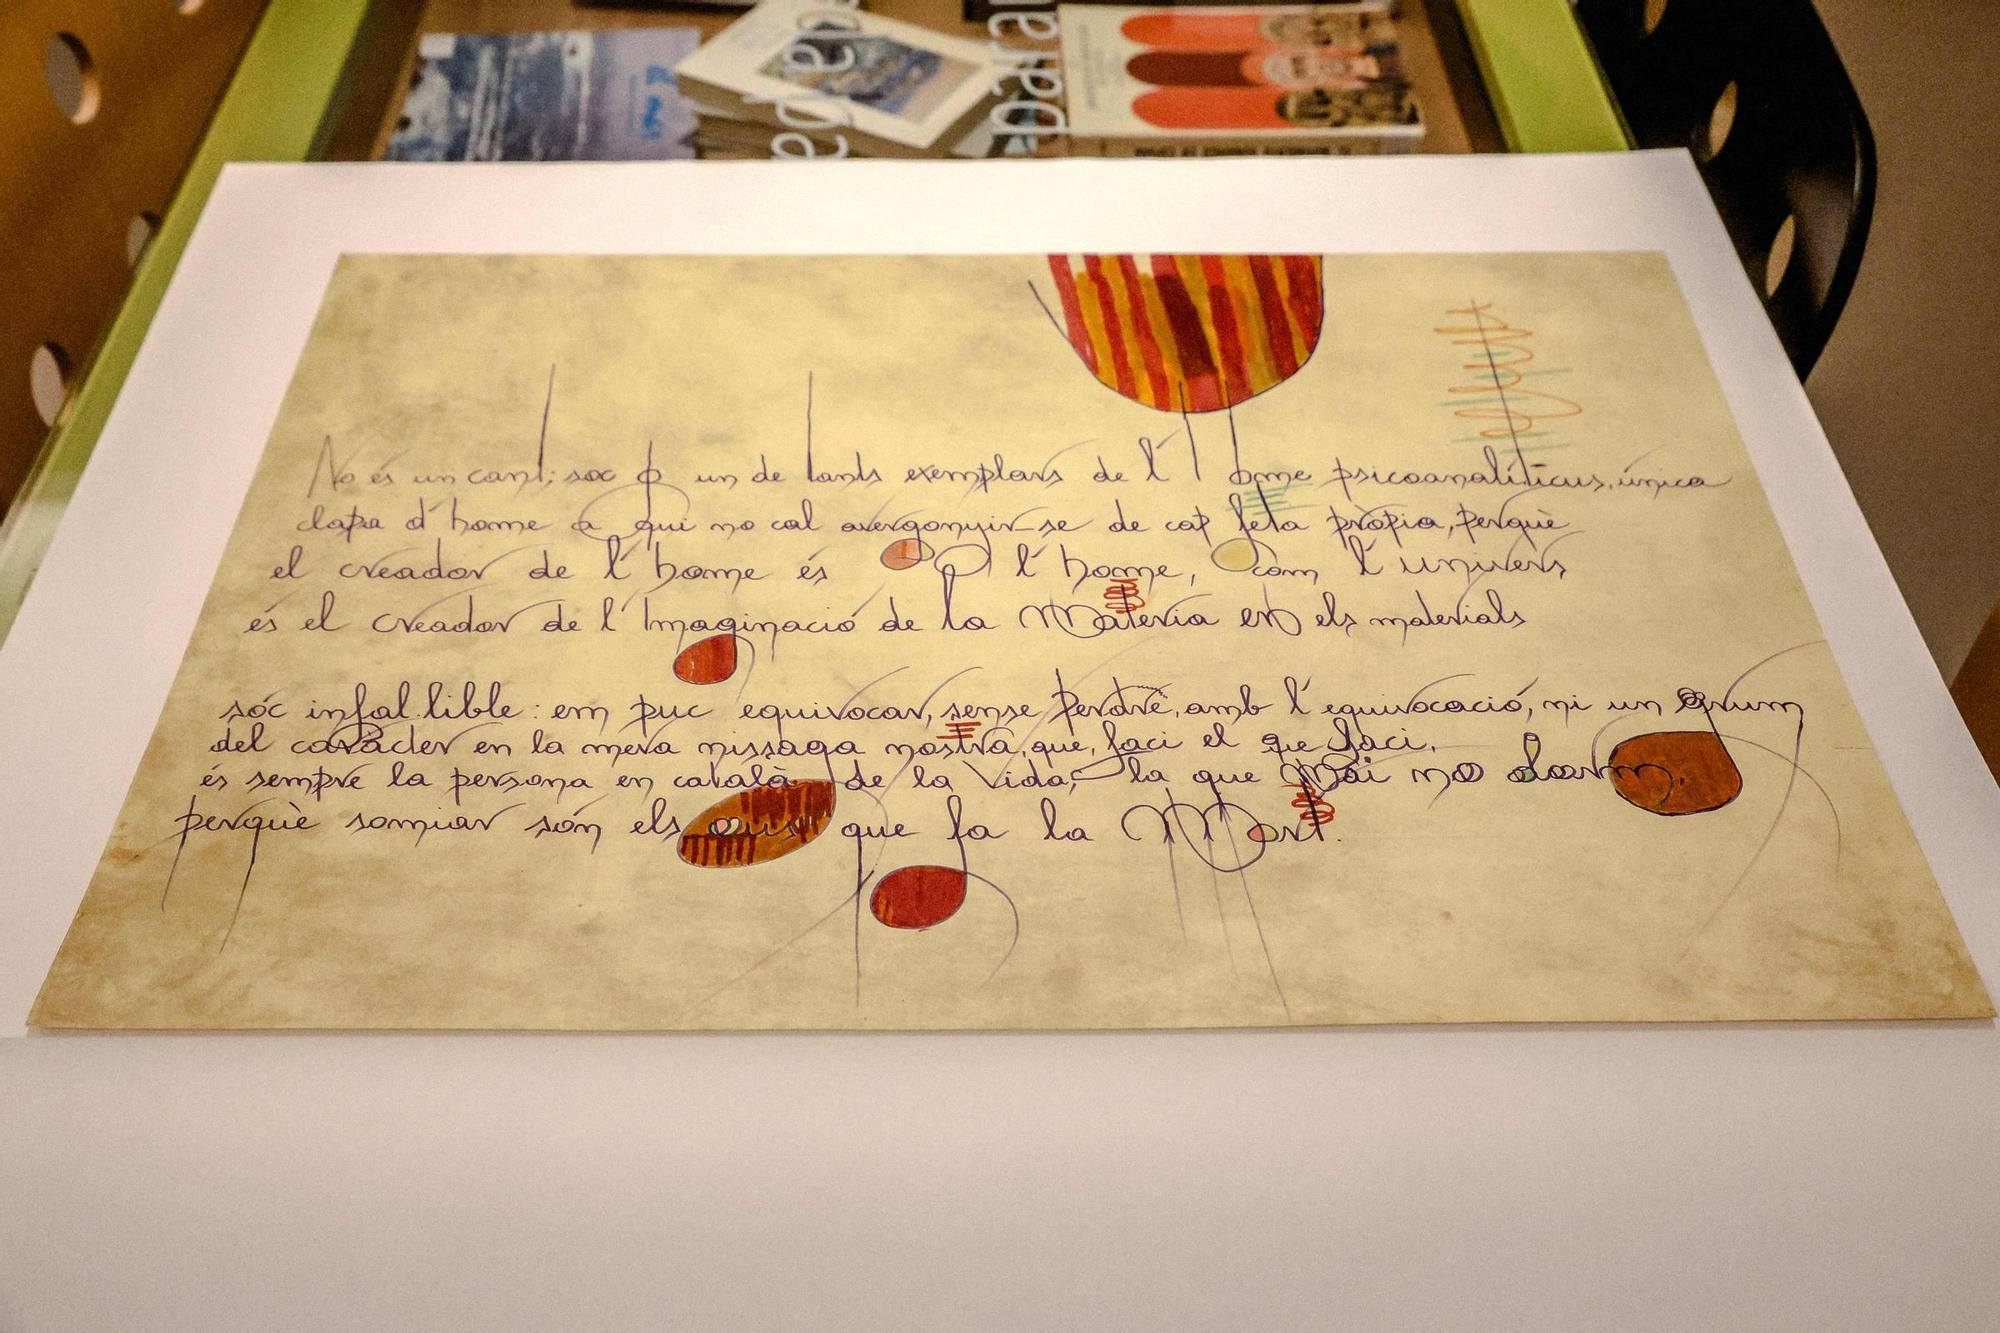 No és un cant; soc un de tants exemplars de l'home psicoanalíticus, única
clapa d'home a qui no cal avergonyir-se de cap feta pròpia, perquè
el creador de l'home és l'home, com l'univers
és el creador de l'Imaginació de la Matèria en els materials
sóc infal·lible: em puc equivocar, sense perdre, amb l'equivocació, ni un grum
del caràcter en la meva nissaga nostra, que, faci el que faci,
és sempre la persona en català de la Vida, la que Mai no dorm,
perquè somiar són els ous que fa la Mort.